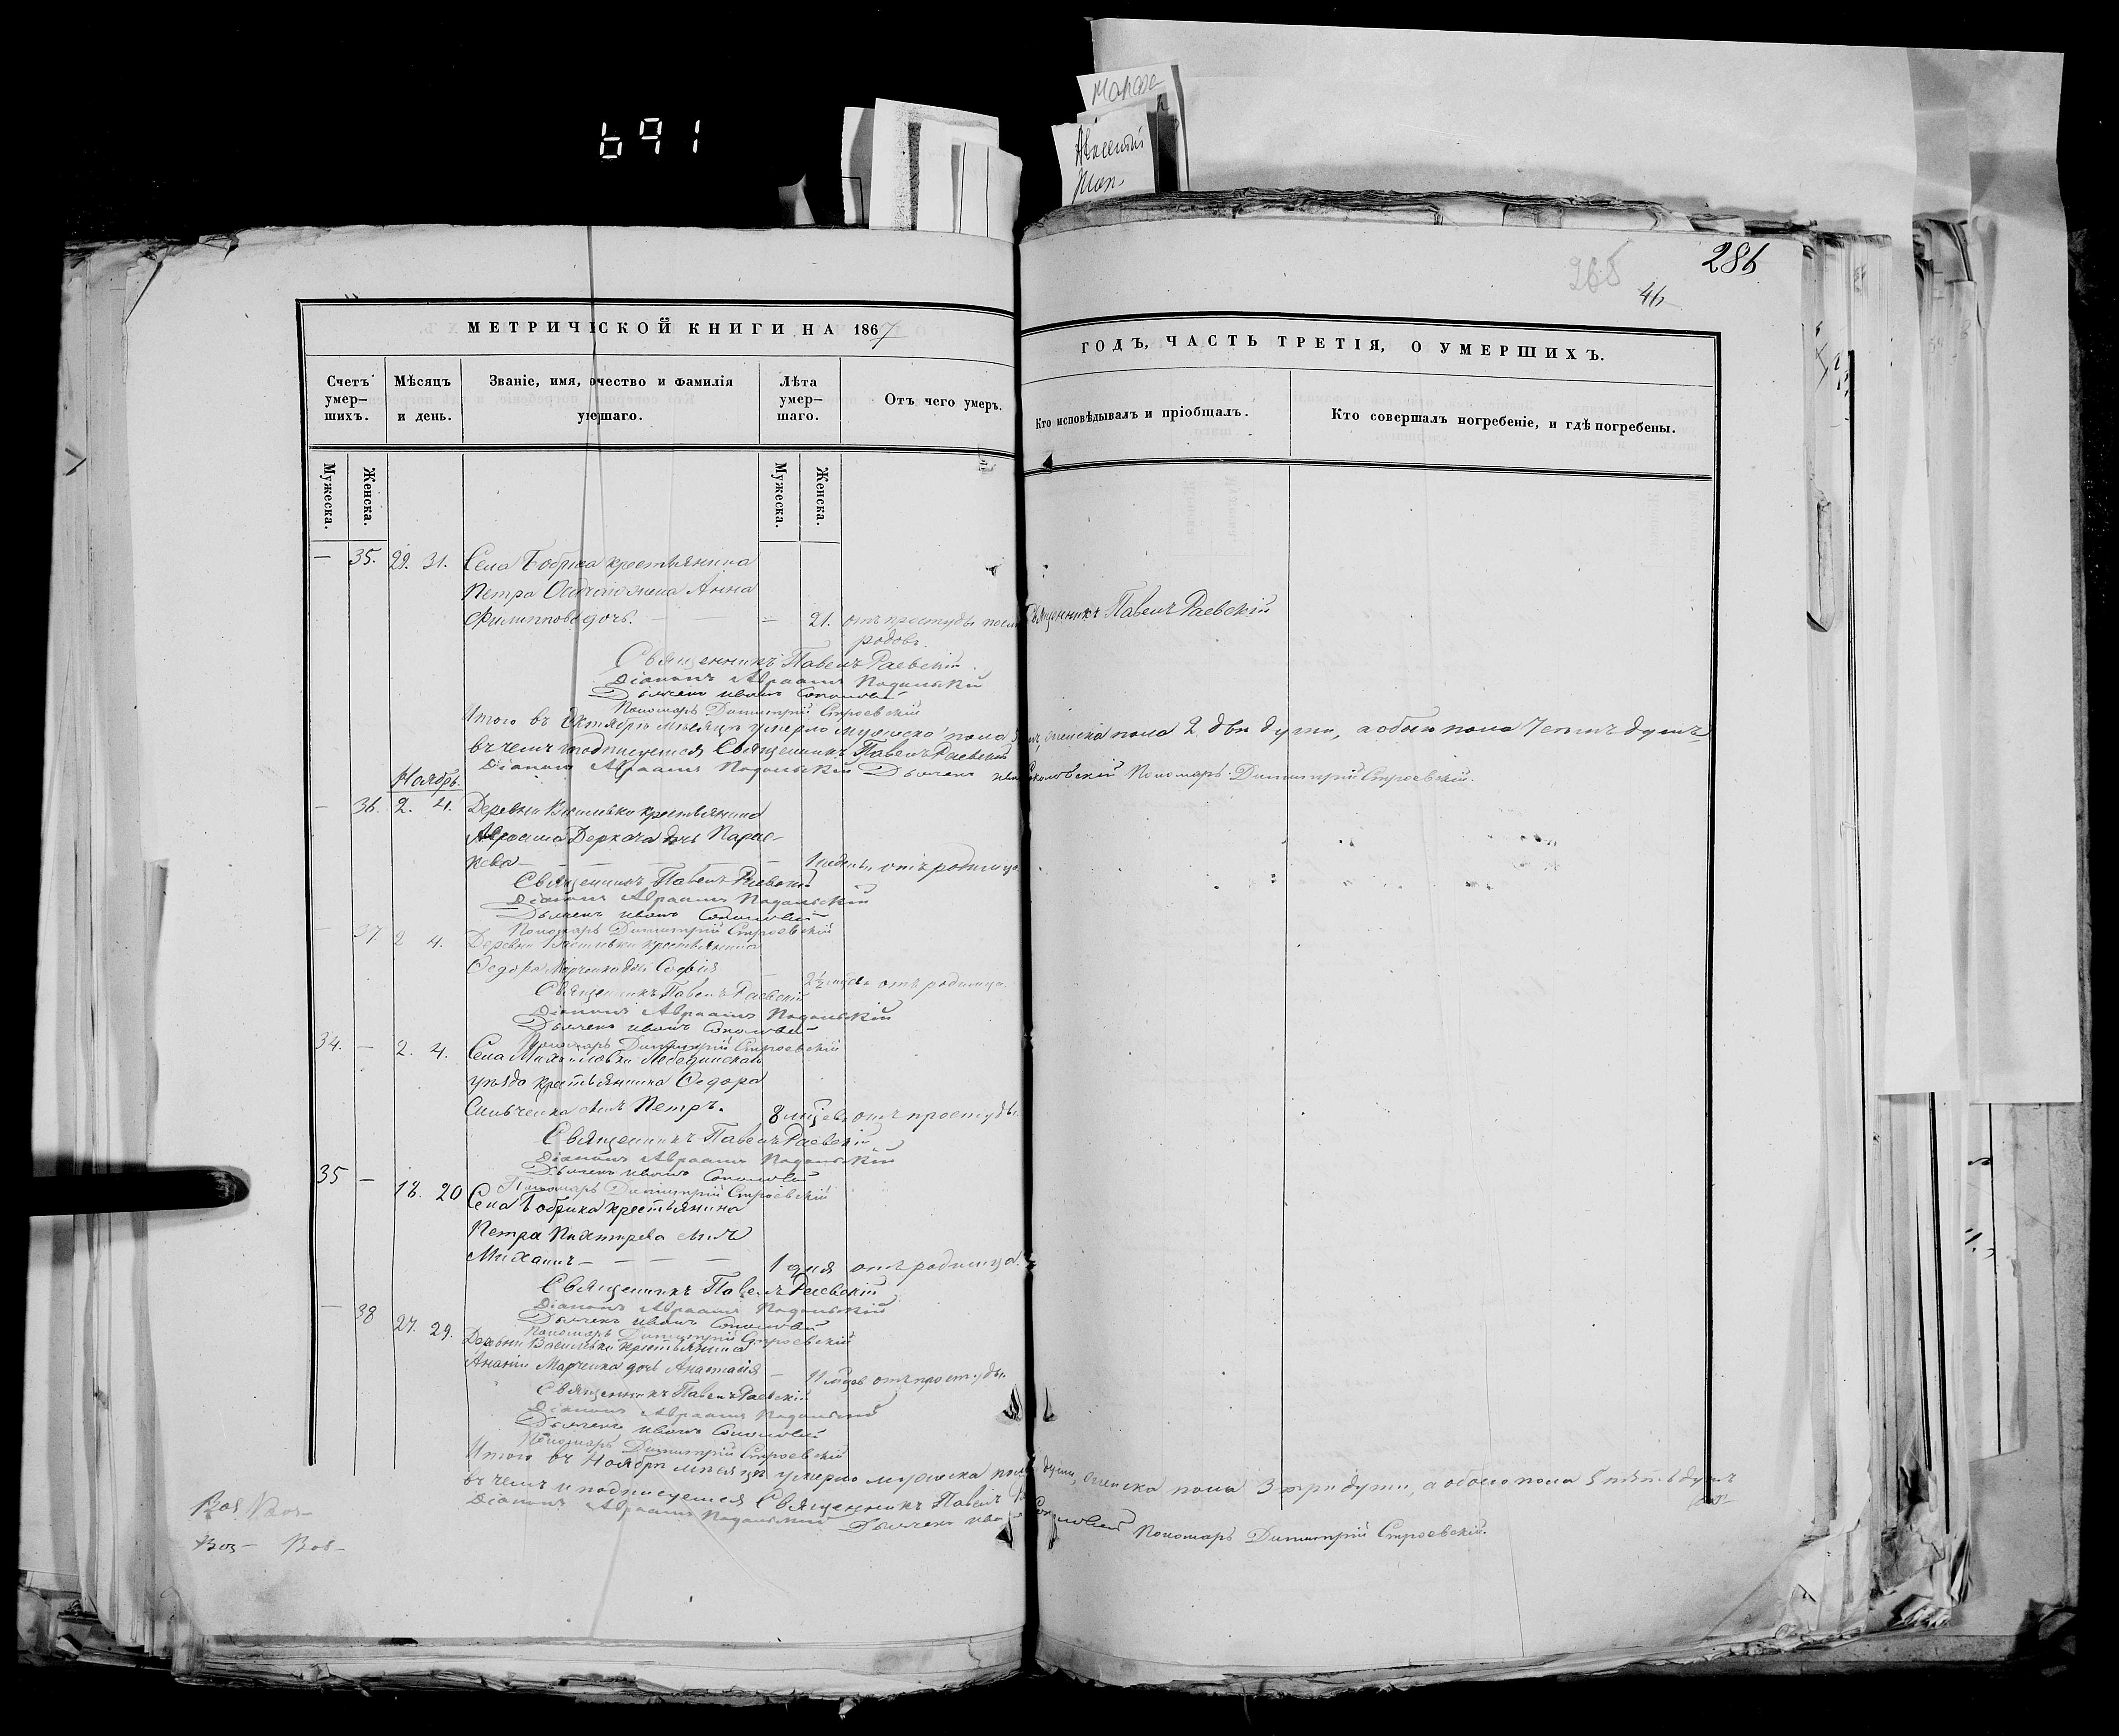 691
Марфа
Алексѣй
286
46
МЕТРИЧЕСКОЙ КНИГИ НА 1867 ГОДЪ, ЧАСТЬ ТРЕТІЯ, О УМЕРШИХЪ.
Счетъ умер–шихъ.
Мѣсяцъ и день.
Званіе, имя, очество и фамилія умершаго.
Лѣта умер–шаго.
Отъ чего умеръ.
Кто исповѣдывалъ и пріобщалъ.
Кто совершалъ погребеніе, и гдѣ погребены.
Мужеска.
Женска.
Мужеска.
Женска.
— 35. 29. 31. Села Бобрика крестьянина
Петра жена Анна
Филиппова дочь. — — — 21. отъ простуды послѣ Священникъ Павелъ Раевскій
родовъ.
Священникъ Павелъ Раевскій
Діаконъ Авраамъ Подольскій
Дьячекъ Иванъ Соколовскій
Пономарь Димитрій Строевскій
Итого въ Октябрѣ мѣсяцѣ умерло мужеска пола 5 женска пола 2 двѣ души, а обоего пола 7 семь душъ
въ чемъ и подписуемся Священникъ Павелъ Раевскій
Діаконъ Авраамъ Подольскій Дьячекъ Иванъ Соколовскій Пономарь Димитрій Строевскій.
Ноябрь.
— 36. 2. 4. Деревни Васильевки крестьянина
Авраама Деркача дочь Парас-
кева — — — 1 недѣли отъ родимца
Священникъ Павелъ Раевскій
Діаконъ Авраамъ Подольскій
Дьячекъ Иванъ Соколовскій
Пономарь Димитрій Строевскій
— 37 2 4. Деревни Васильевки крестьянина
Федора Марченка дочь Софія — 2½ отъ родимца.
Священникъ Павелъ Раевскій
Діаконъ Авраамъ Подольскій
Дьячекъ Иванъ Соколовскій
Пономарь Димитрій Строевскій
34. — 2. 4. Села Михайловки Лебединскаго
уѣзда крестьянина Федора
сынъ Петръ. 8 мѣсяцевъ отъ простуды.
Священникъ Павелъ Раевскій
Діаконъ Авраамъ Подольскій
Дьячекъ Иванъ Соколовскій
Пономарь Димитрій Строевскій
35 — 18. 20 Села Бобрика крестьянина
Петра сынъ
Михаилъ — — — 1 дня отъ родимца.
Священникъ Павелъ Раевскій
Діаконъ Авраамъ Подольскій
Дьячекъ Иванъ Соколовскій
Пономарь Димитрій Строевскій
— 38 27. 29. Деревни Васильевки крестьянина
Ананіи Марченка дочь Анастасія — 11 отъ простуды.
Священникъ Павелъ Раевскій
Діаконъ Авраамъ Подольскій
Дьячекъ Иванъ Соколовскій
Пономарь Димитрій Строевскій
Итого въ Ноябрѣ мѣсяцѣ умерло мужеска пола души, женска пола 3 три души, а обоего пола 5 пять душъ
въ чемъ и подписуемся Священникъ Павелъ
Діаконъ Авраамъ Подольскій Дьячекъ Иванъ Соколовскій Пономарь Димитрій Строевскій.